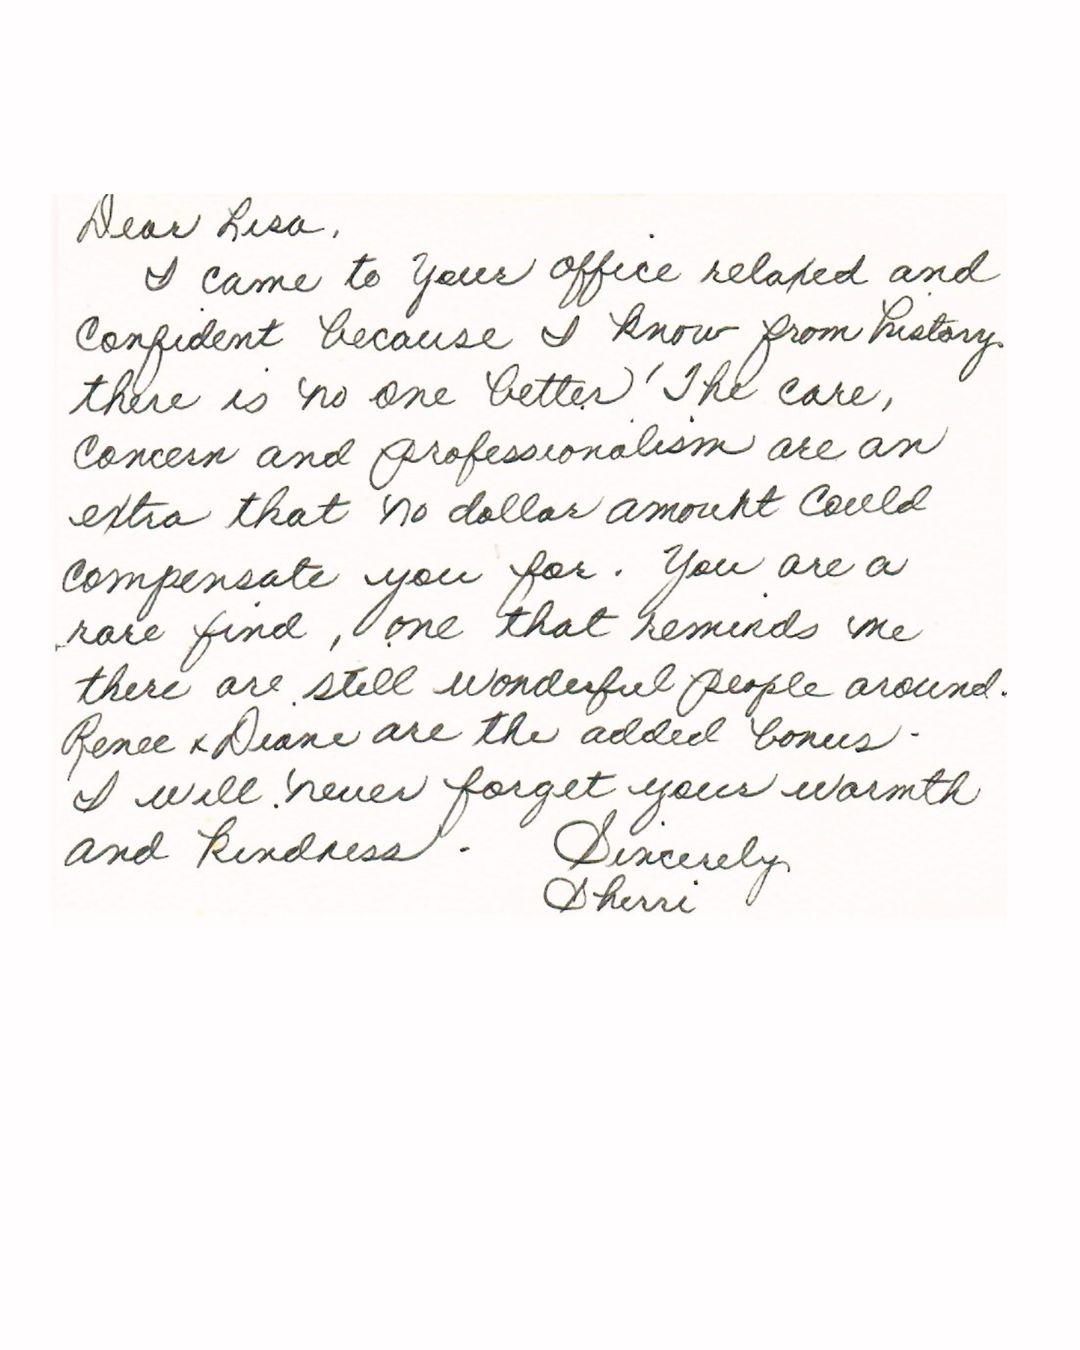 Dear Lisa,
I came to your office relaxed and
confident because I know from history
there is no one better! The care,
concern and professionalism are an
extra that no dollar amount could
compensate you for. You are a
rare find, one that reminds me
there are still wonderful people around.
Renee & Diane are the added bonus.
I will never forget your warmth
and kindness.
Sincerely
Sherri